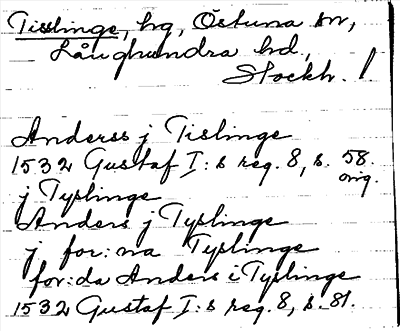 Tisslinge, hg, Östuna sn,
Långhundra hd.,
Stockh. /
Anderss j Tislinge
1532 Gustaf I:s reg. 8, s. 58.
orig.
j Tyslinge
Anders j Tyslinge
j for:na Tyslinge
for:da Anders i Tyslinge
1532 Gustaf I:s reg. 8, s. 81.